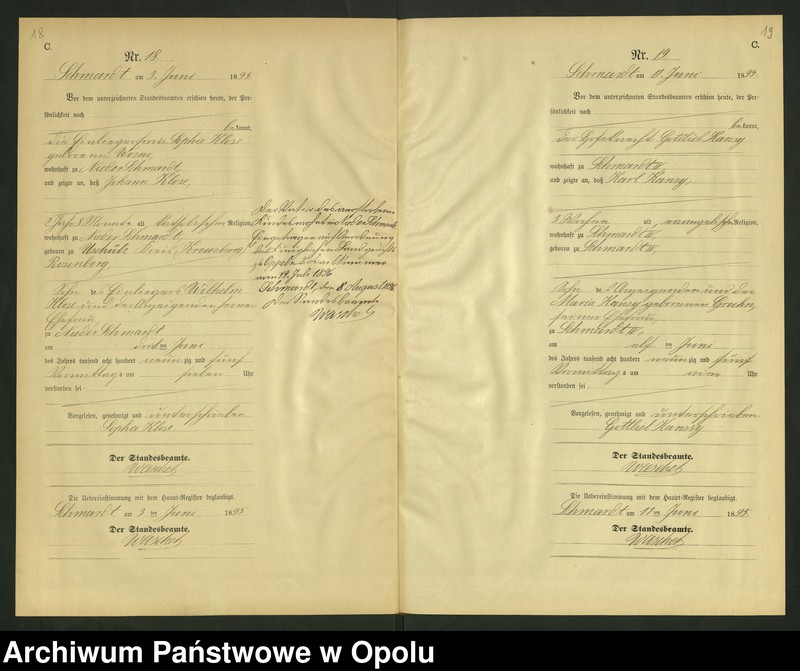 18
C.
Nr. 18.
Schmardt am 3. Juni 1895.
Vor dem unterzeichneten Standesbeamten erschien heute, der Per-
sönlichkeit nach
bekannt,
die Einliegerfrau Sophie Klose
geborene
wohnhaft zu Nieder Schmardt
und zeigte an, daß Johann Klose,
2 Jahr 8 Monate alt katholischer Religion,
wohnhaft zu Nieder Schmardt,
geboren zu Uschütz Kreis
Rosenberg,
Sohn des Einliegers Wilhelm
Klose und der Anzeigenden seiner
Ehefrau
zu Nieder Schmardt
am dritten Juni
des Jahres tausend acht hundert neunzig und fünf
Vormittags um sieben Uhr
verstorben sei.
Vorgelesen, genehmigt und unterschrieben
Sophie Klose
Der Standesbeamte.
Waschek
Die Uebereinstimmung mit dem Haupt-Register beglaubigt.
Schmardt am 3ten Juni 1895.
Der Standesbeamte.
Waschek
Der Vater des verstorbenen
Kindes wohnte
auf Anordnung
des Königlichen Landgerichts
zu Oppeln
vom 14. Juli 1896
Schmardt, den 8 August 1896
Der Standesbeamte
Waschek
19
C.
Nr. 19.
Schmardt am 11. Juni 1895.
Vor dem unterzeichneten Standesbeamten erschien heute, der Per-
sönlichkeit nach
bekannt,
der Hofeknecht Gottlieb Kansy
wohnhaft zu Schmardt II,
und zeigte an, daß Karl Kansy,
3 Wochen alt evangelischer Religion,
wohnhaft zu Schmardt II,
geboren zu Schmardt II,
Sohn des Anzeigenden und der
Maria Kansy geborenen
seiner Ehefrau,
zu Schmardt II,
am elften Juni
des Jahres tausend acht hundert neunzig und fünf
Vormittags um neun Uhr
verstorben sei.
Vorgelesen, genehmigt und unterschrieben
Gottlieb Kansy
Der Standesbeamte.
Waschek
Die Uebereinstimmung mit dem Haupt-Register beglaubigt.
Schmardt am 11ten Juni 1895.
Der Standesbeamte.
Waschek
Archiwum Państwowe w Opolu